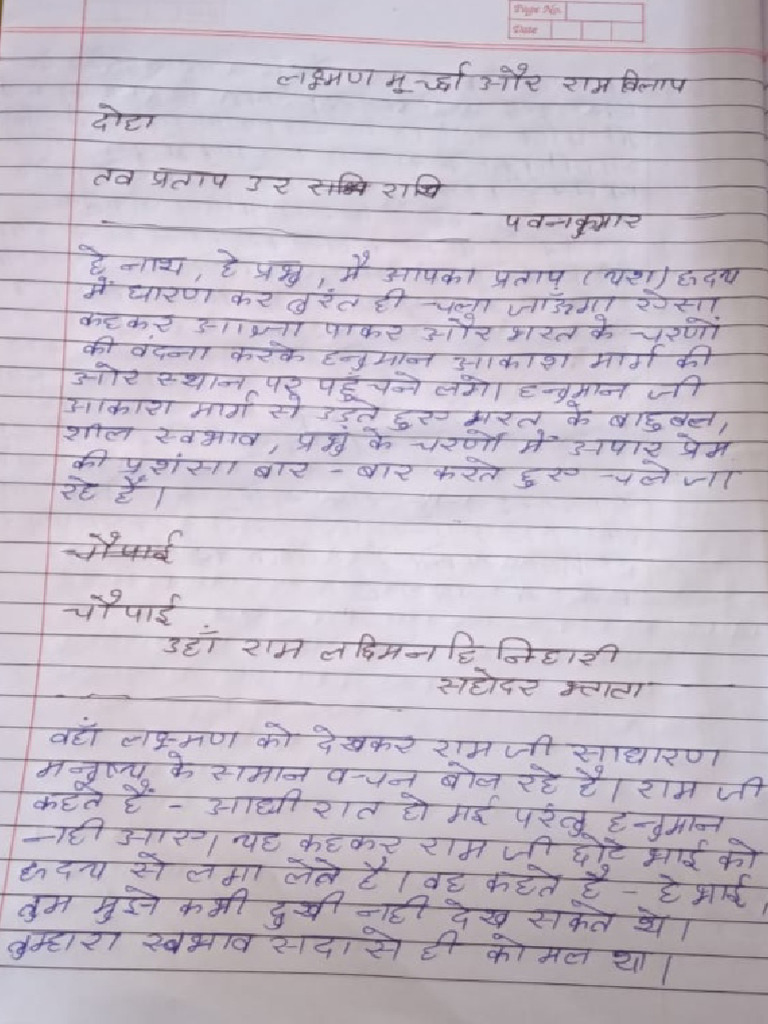 Page No.
Date
लक्ष्मण मूर्च्छा और राम विलाप
दोहा
तव प्रताप उर राखि
पवनकुमार
हे नाथ, हे प्रभु, मैं आपका प्रताप (यश) हृदय
में धारण कर तुरंत ही चला जाऊँगा ऐसा
कहकर आज्ञा पाकर और भरत के चरणों
की वंदना करके हनुमान आकाश मार्ग की
ओर स्थान पर पहुँचने लगे। हनुमान जी
आकाश मार्ग से उड़ते हुए भरत के बाहुबल,
शील स्वभाव, प्रभु के चरणों में अपार प्रेम
की प्रशंसा बार - बार करते हुए चले जा
रहे हैं।
चौपाई
चौपाई
उहाँ राम लछिमनहि निहारी
सहोदर भ्राता
वहाँ लक्ष्मण को देखकर राम जी साधारण
मनुष्य के समान वचन बोल रहे है। राम जी
कहते हैं - आधी रात हो गई परंतु हनुमान
नही आए। यह कहकर राम जी छोटे भाई को
हृदय से लगा लेते है। वह कहते है - हे भाई,
तुम मुझे कभी दुखी नही देख सकते थे।
तुम्हारा स्वभाव सदा से ही कोमल था।